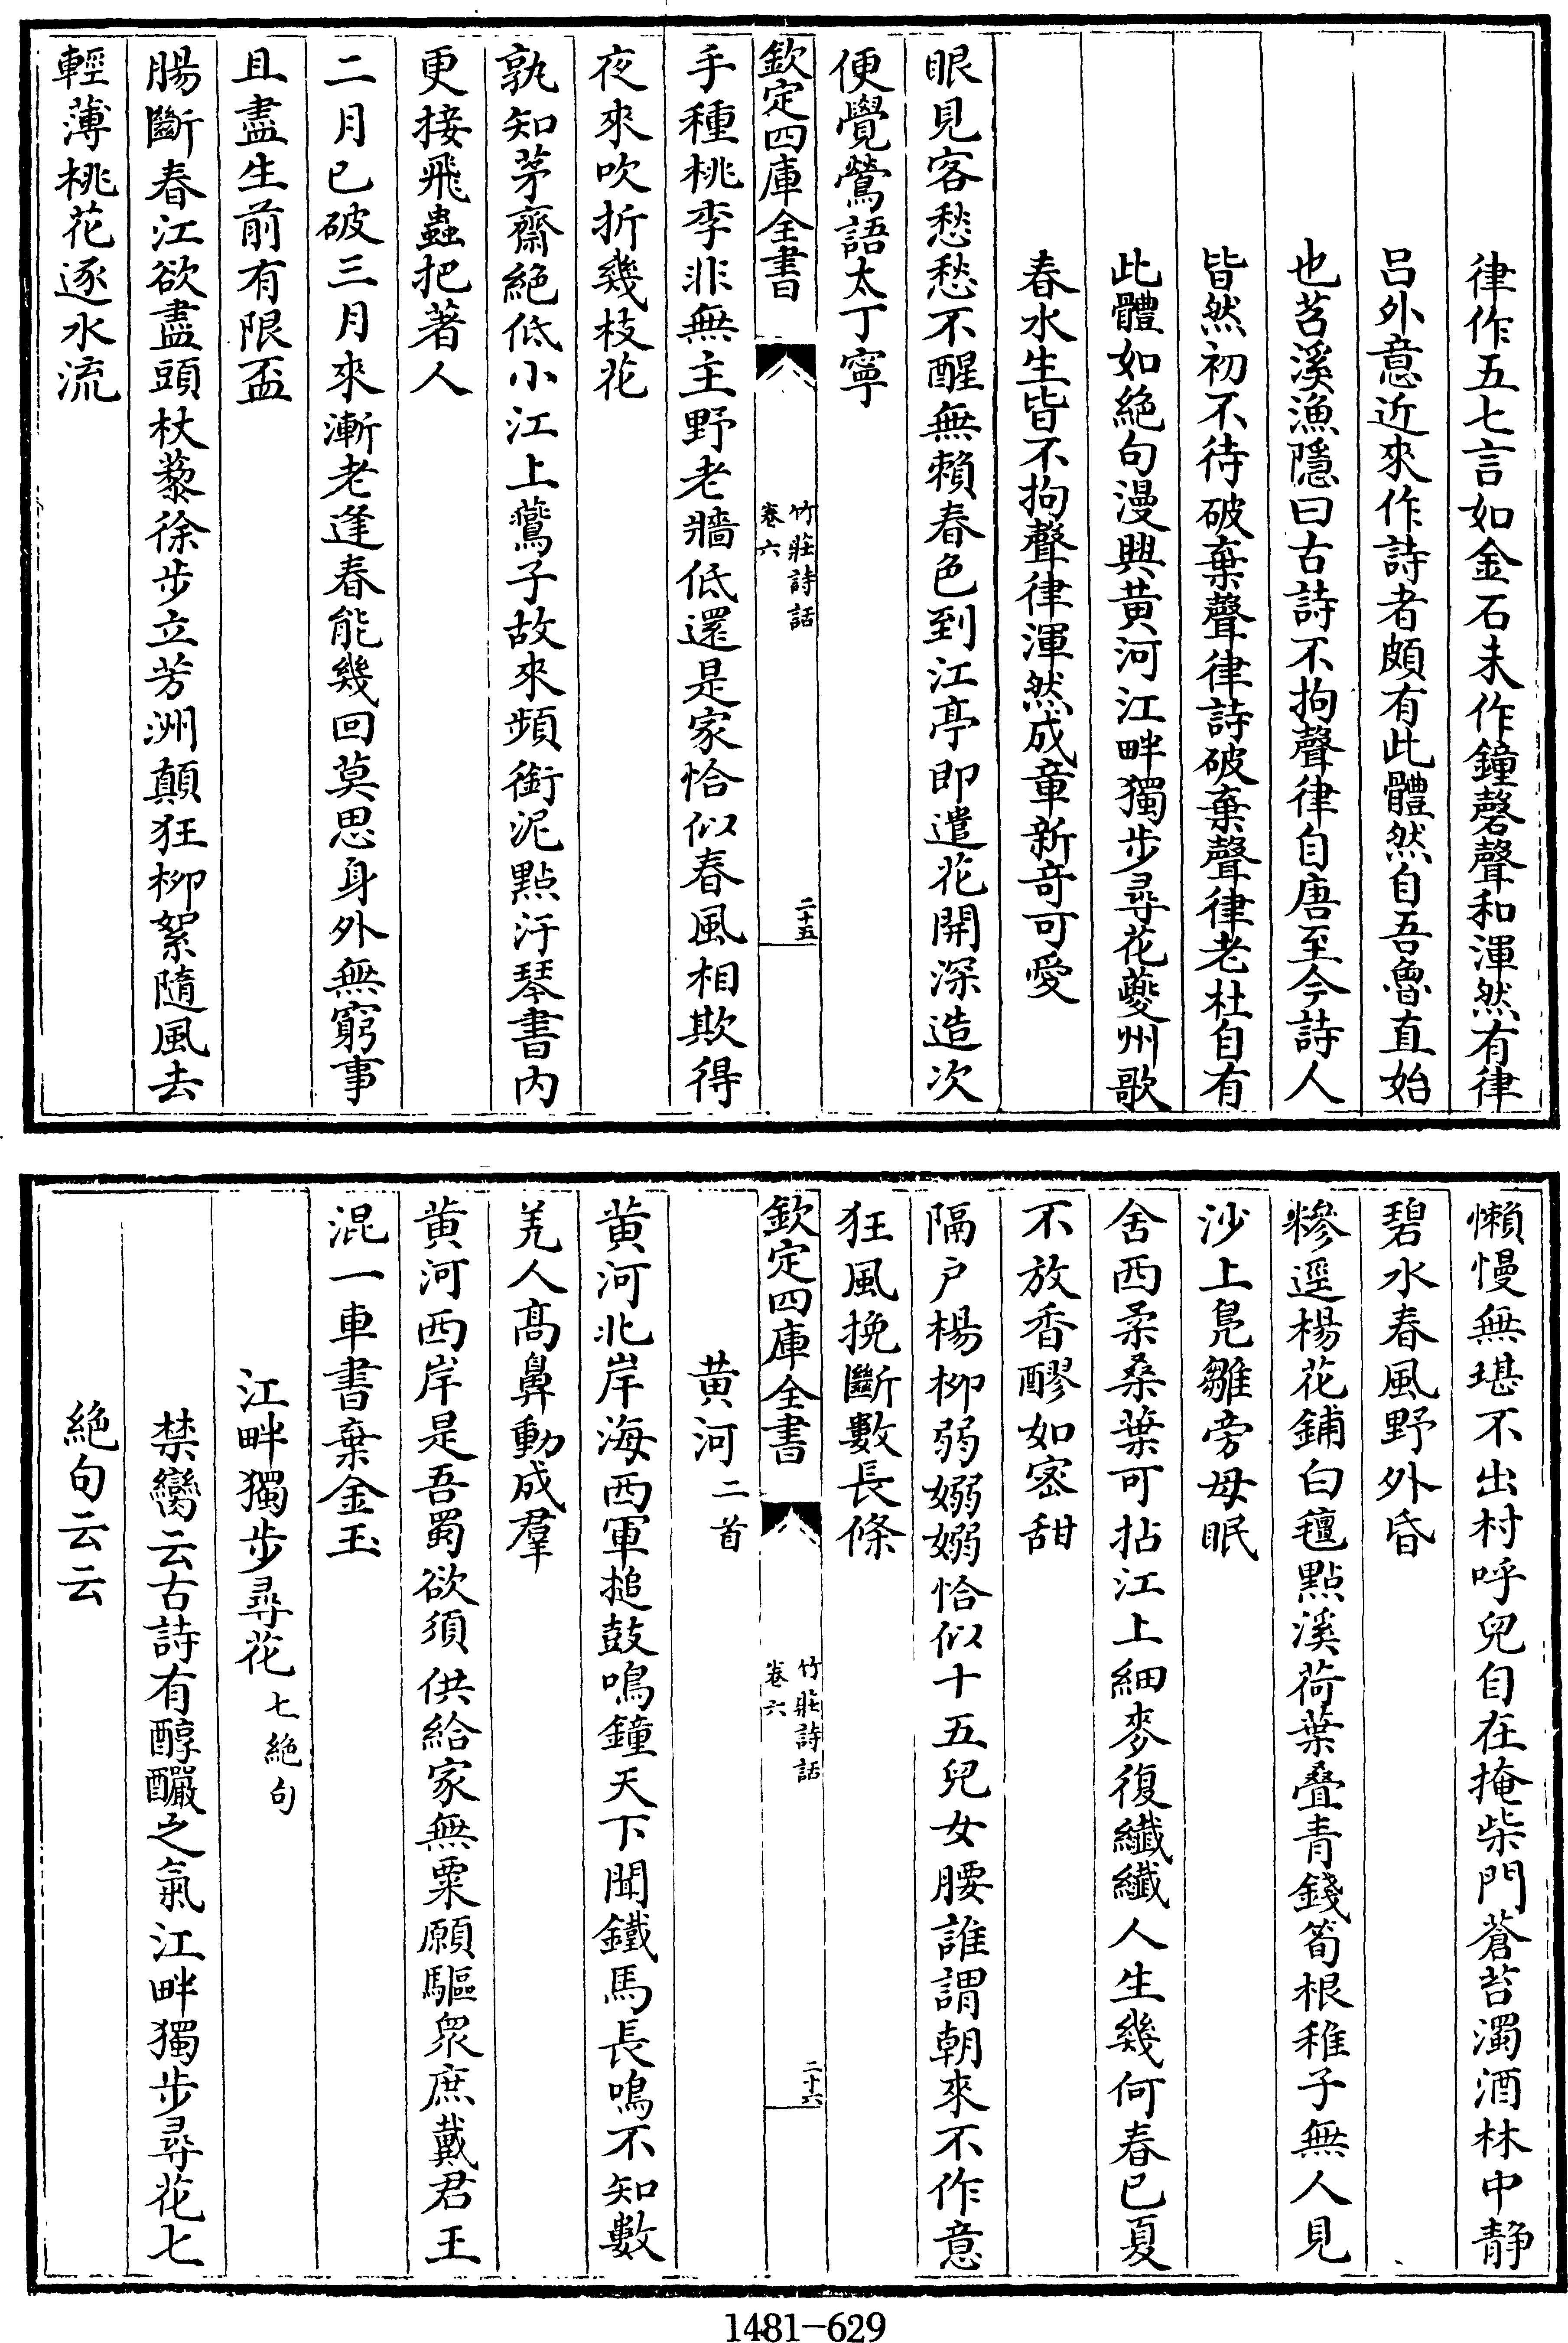 律作五七言如金石未作鐘磬聲和渾然有律
吕外意近來作詩者頗有此體然自吾魯直始
也苕溪漁隱曰古詩不拘聲律自唐至今詩人
皆然初不待破棄聲律詩破棄聲律老杜自有
此體如絶句漫興黄河江畔獨步尋花夔州歌
春水生皆不拘聲律渾然成章新竒可愛
眼見客愁愁不醒無賴春色到江亭即遣花開深造次
便覺鶯語太丁寧
欽定四庫全書
竹莊詩話
卷六
二十五
手種桃李非無主野老牆低還是家恰似春風相欺得
夜來吹折幾枝花
孰知茅齋絶低小江上鷰子故來頻銜泥點汙琴書内
更接飛蟲把著人
二月已破三月來漸老逢春能幾回莫思身外無窮事
且盡生前有限盃
腸斷春江欲盡頭杖藜徐步立芳洲顛狂柳絮隨風去
輕薄桃花逐水流
懶慢無堪不出村呼兒自在掩柴門蒼苔濁酒林中静
碧水春風野外昏
糝逕楊花鋪白氊點溪荷葉疊青錢筍根稚子無人見
沙上鳬雛旁母眠
舍西柔桑葉可拈江上細麥復纖纖人生幾何春已夏
不放香醪如宻甜
隔户楊柳弱嫋嫋恰似十五兒女腰誰謂朝來不作意
狂風挽斷數長條
欽定四庫全書
竹莊詩話
卷六
二十六
黄河二首
黄河北岸海西軍搥鼓鳴鐘天下聞鐵馬長鳴不知數
羌人髙鼻動成羣
黄河西岸是吾蜀欲須供給家無粟願驅衆庶戴君王
混一車書棄金玉
江畔獨步尋花七絶句
禁臠云古詩有醇釅之氣江畔獨步尋花七
絶句云云
1481-629